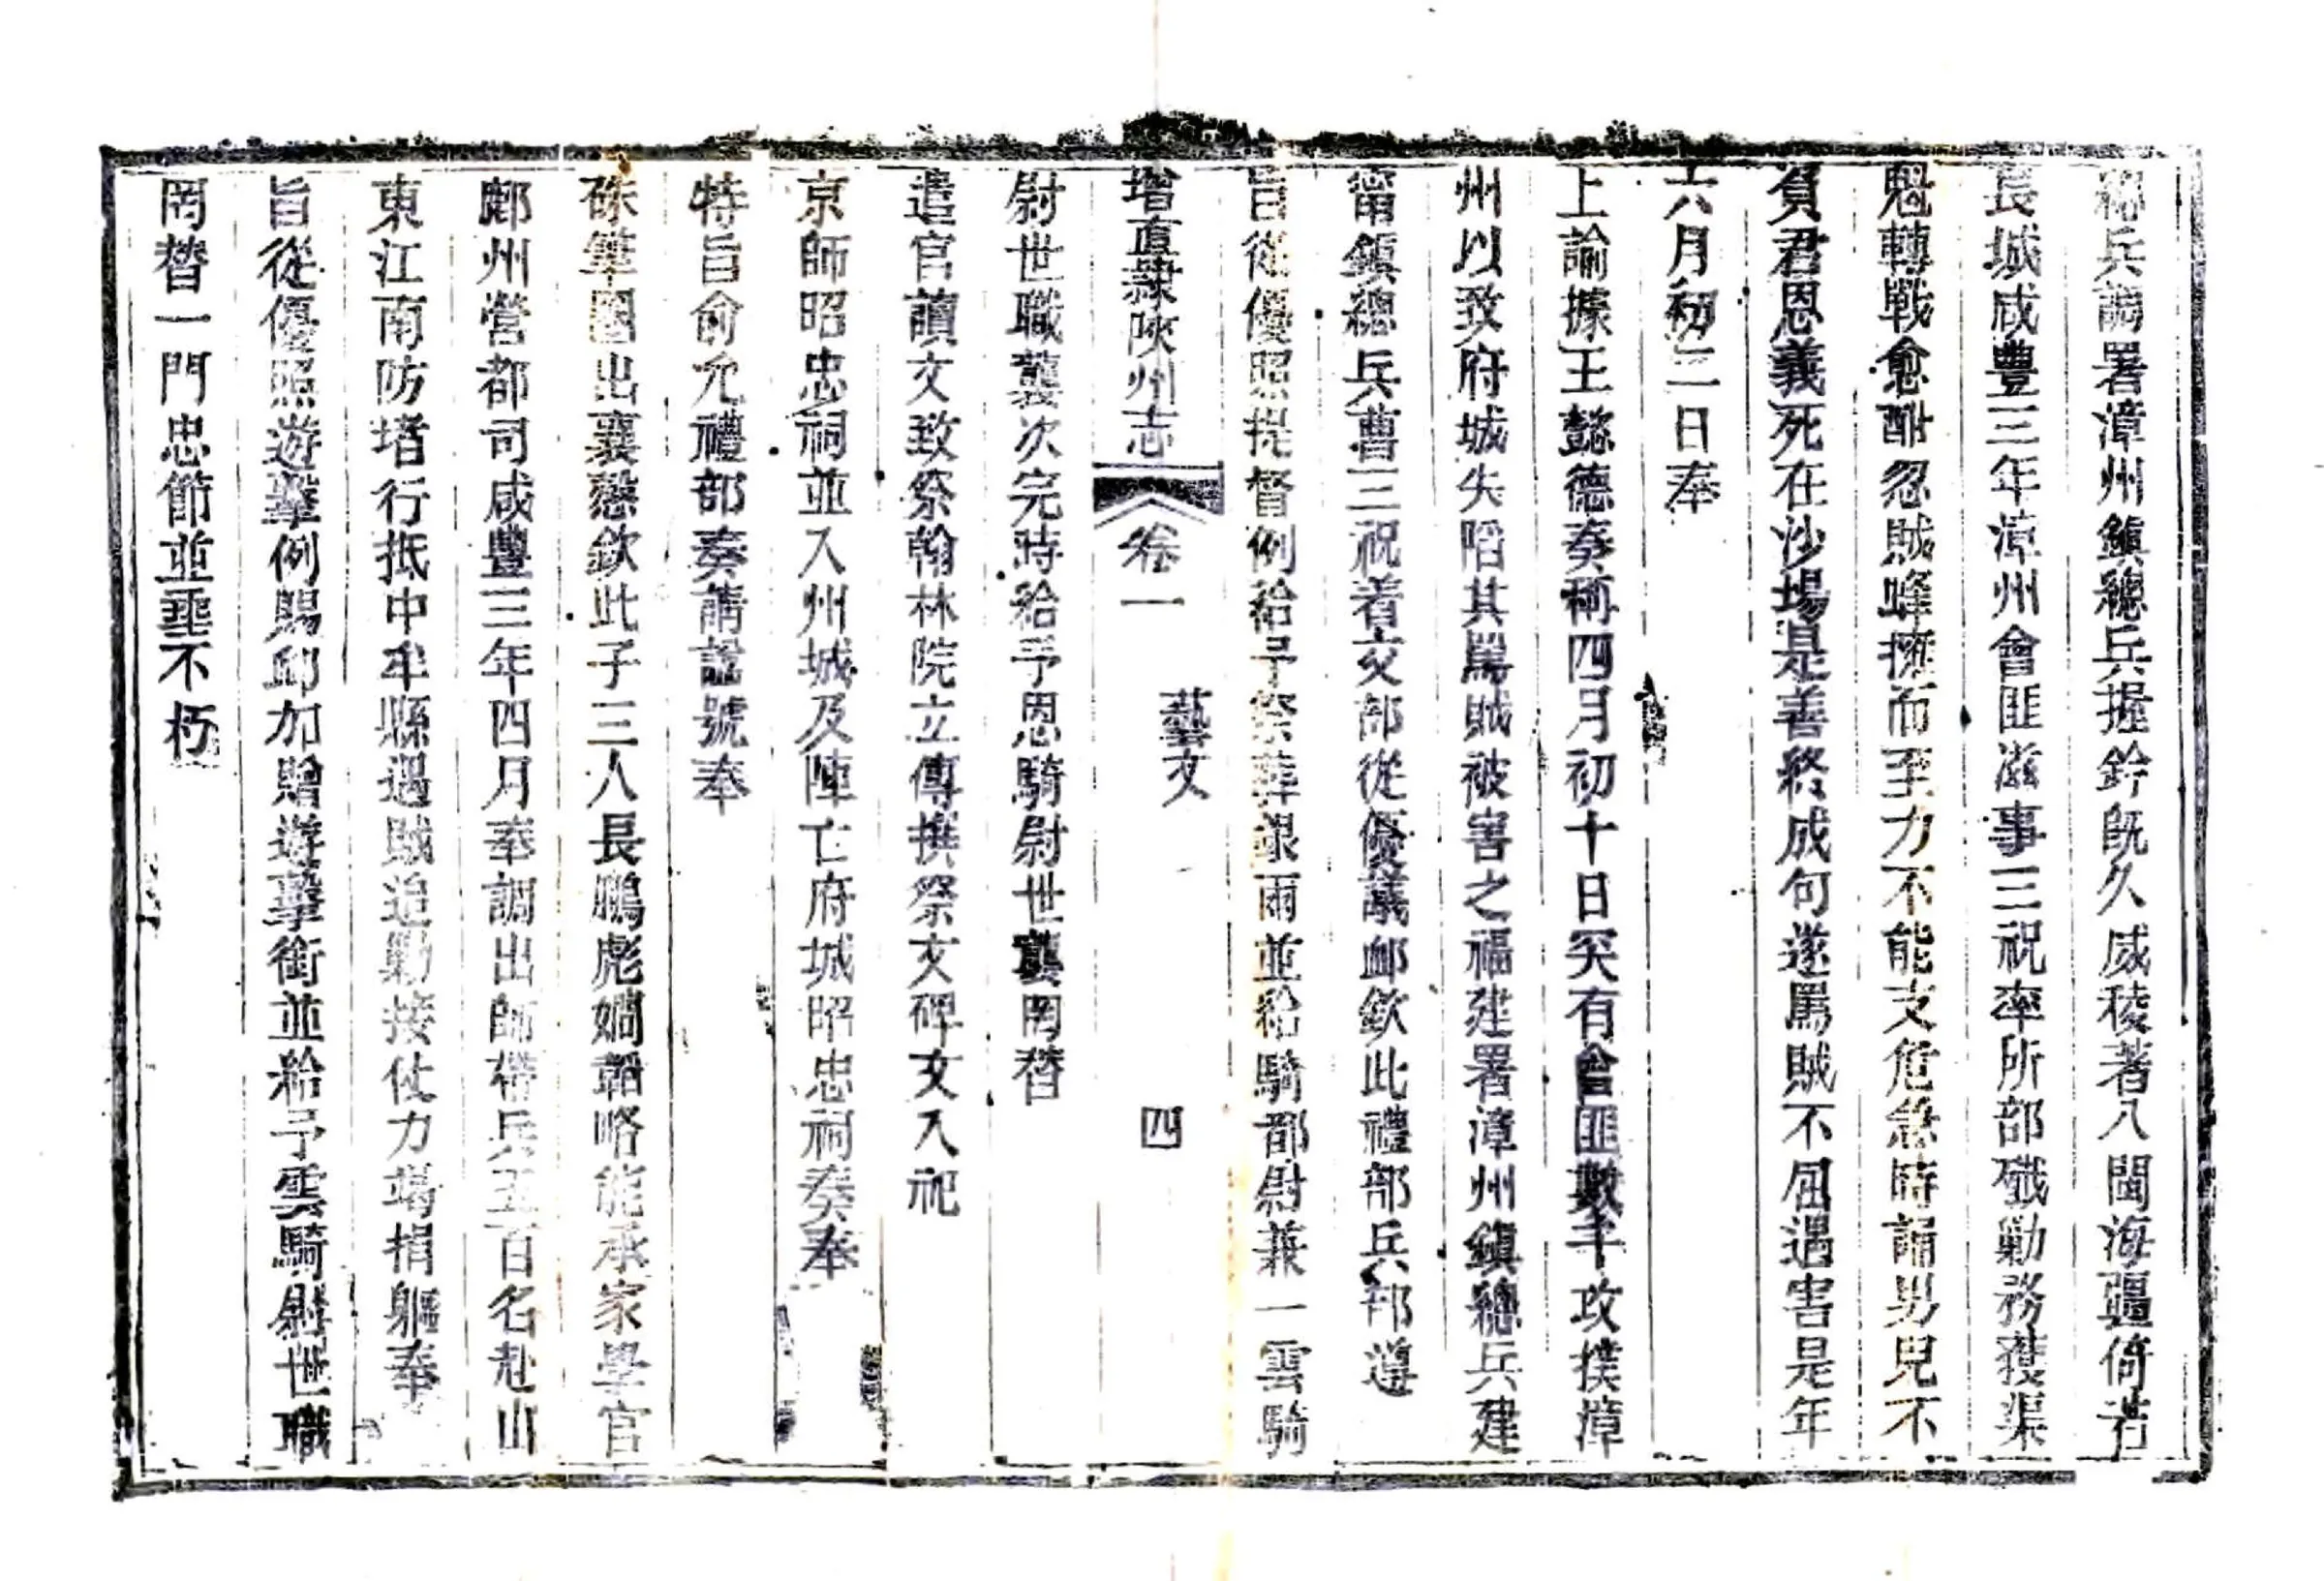 總兵調署漳州鎮總兵握鈴既久威稜著八閩海疆倚若
長城咸豐三年漳州會匪滋事三祝率所部殲勦務獲渠
魁轉戰愈酣忽賊蜂擁而至力不能支危急時誦男兒不
負君恩義死在沙場是善終成句遂罵賊不屈遇害是年
六月初二日奉
上諭據王懿德奏稱四月初十日突有會匪數千攻撲漳
州以致府城失陷其罵賊被害之福建署漳州鎮總兵建
甯鎮總兵曹三祝着交部從優議䘏欽此禮部兵部遵
旨從優照提督例給予祭葬銀兩並給騎都尉兼一雲騎
增直隸陝州志 卷一 藝文 四
尉世職襲次完時給予恩騎尉世襲罔替
遣官讀文致祭翰林院立傳撰祭文碑文入祀
京師昭忠祠並入州城及陣亡府城昭忠祠奏奉
特旨俞允禮部奏請諡號奉
硃筆圈出襄愍欽此子三人長鵬彪嫺韜略能承家學官
鄜州營都司咸豐三年四月奉調出師帶兵五百名赴山
東江南防堵行抵中牟縣遇賊追勦接仗力竭捐軀奉
旨從優照遊擊例賜䘏加贈遊擊銜並給予雲騎尉世職
罔替一門忠節並垂不朽